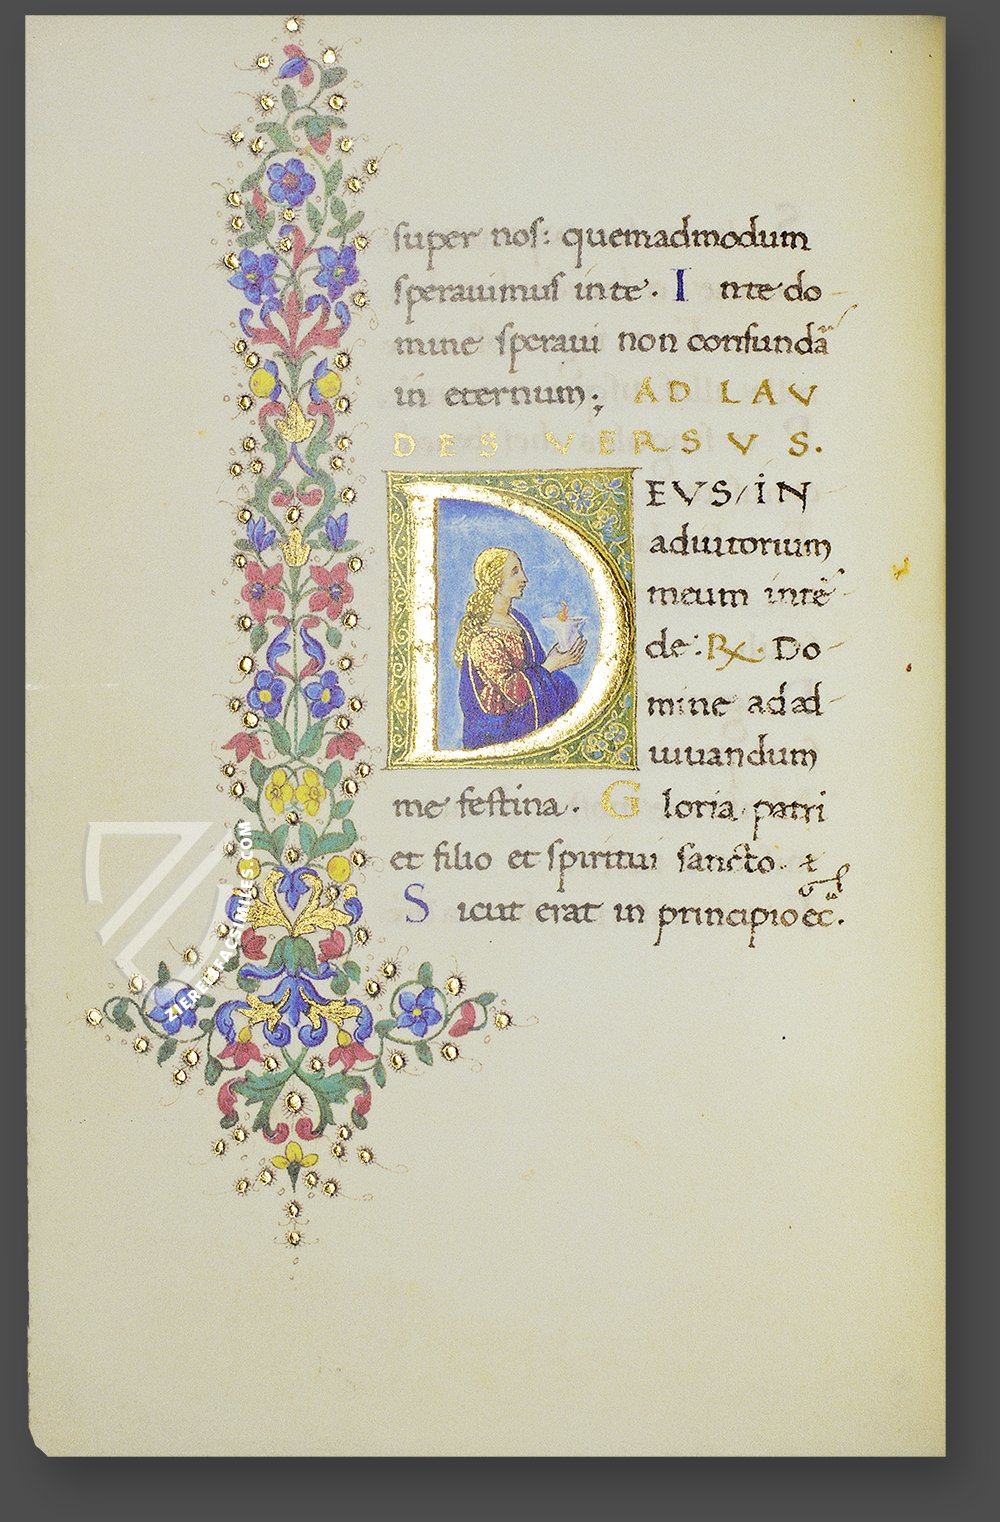 super nos: quemadmodum
sperauimus inte. I nte do
mine speraui non confundā
in eternum; AD LAV
DES VERSVS.
DEVS/IN
adiutorium
meum intē
de: R̷. Do
mine adad
iuuandum
me festina. G loria patri
et filio et spiritui sancto. &
S icut erat in principio ec̄.
ZIEREIS FACSIMILES.COM